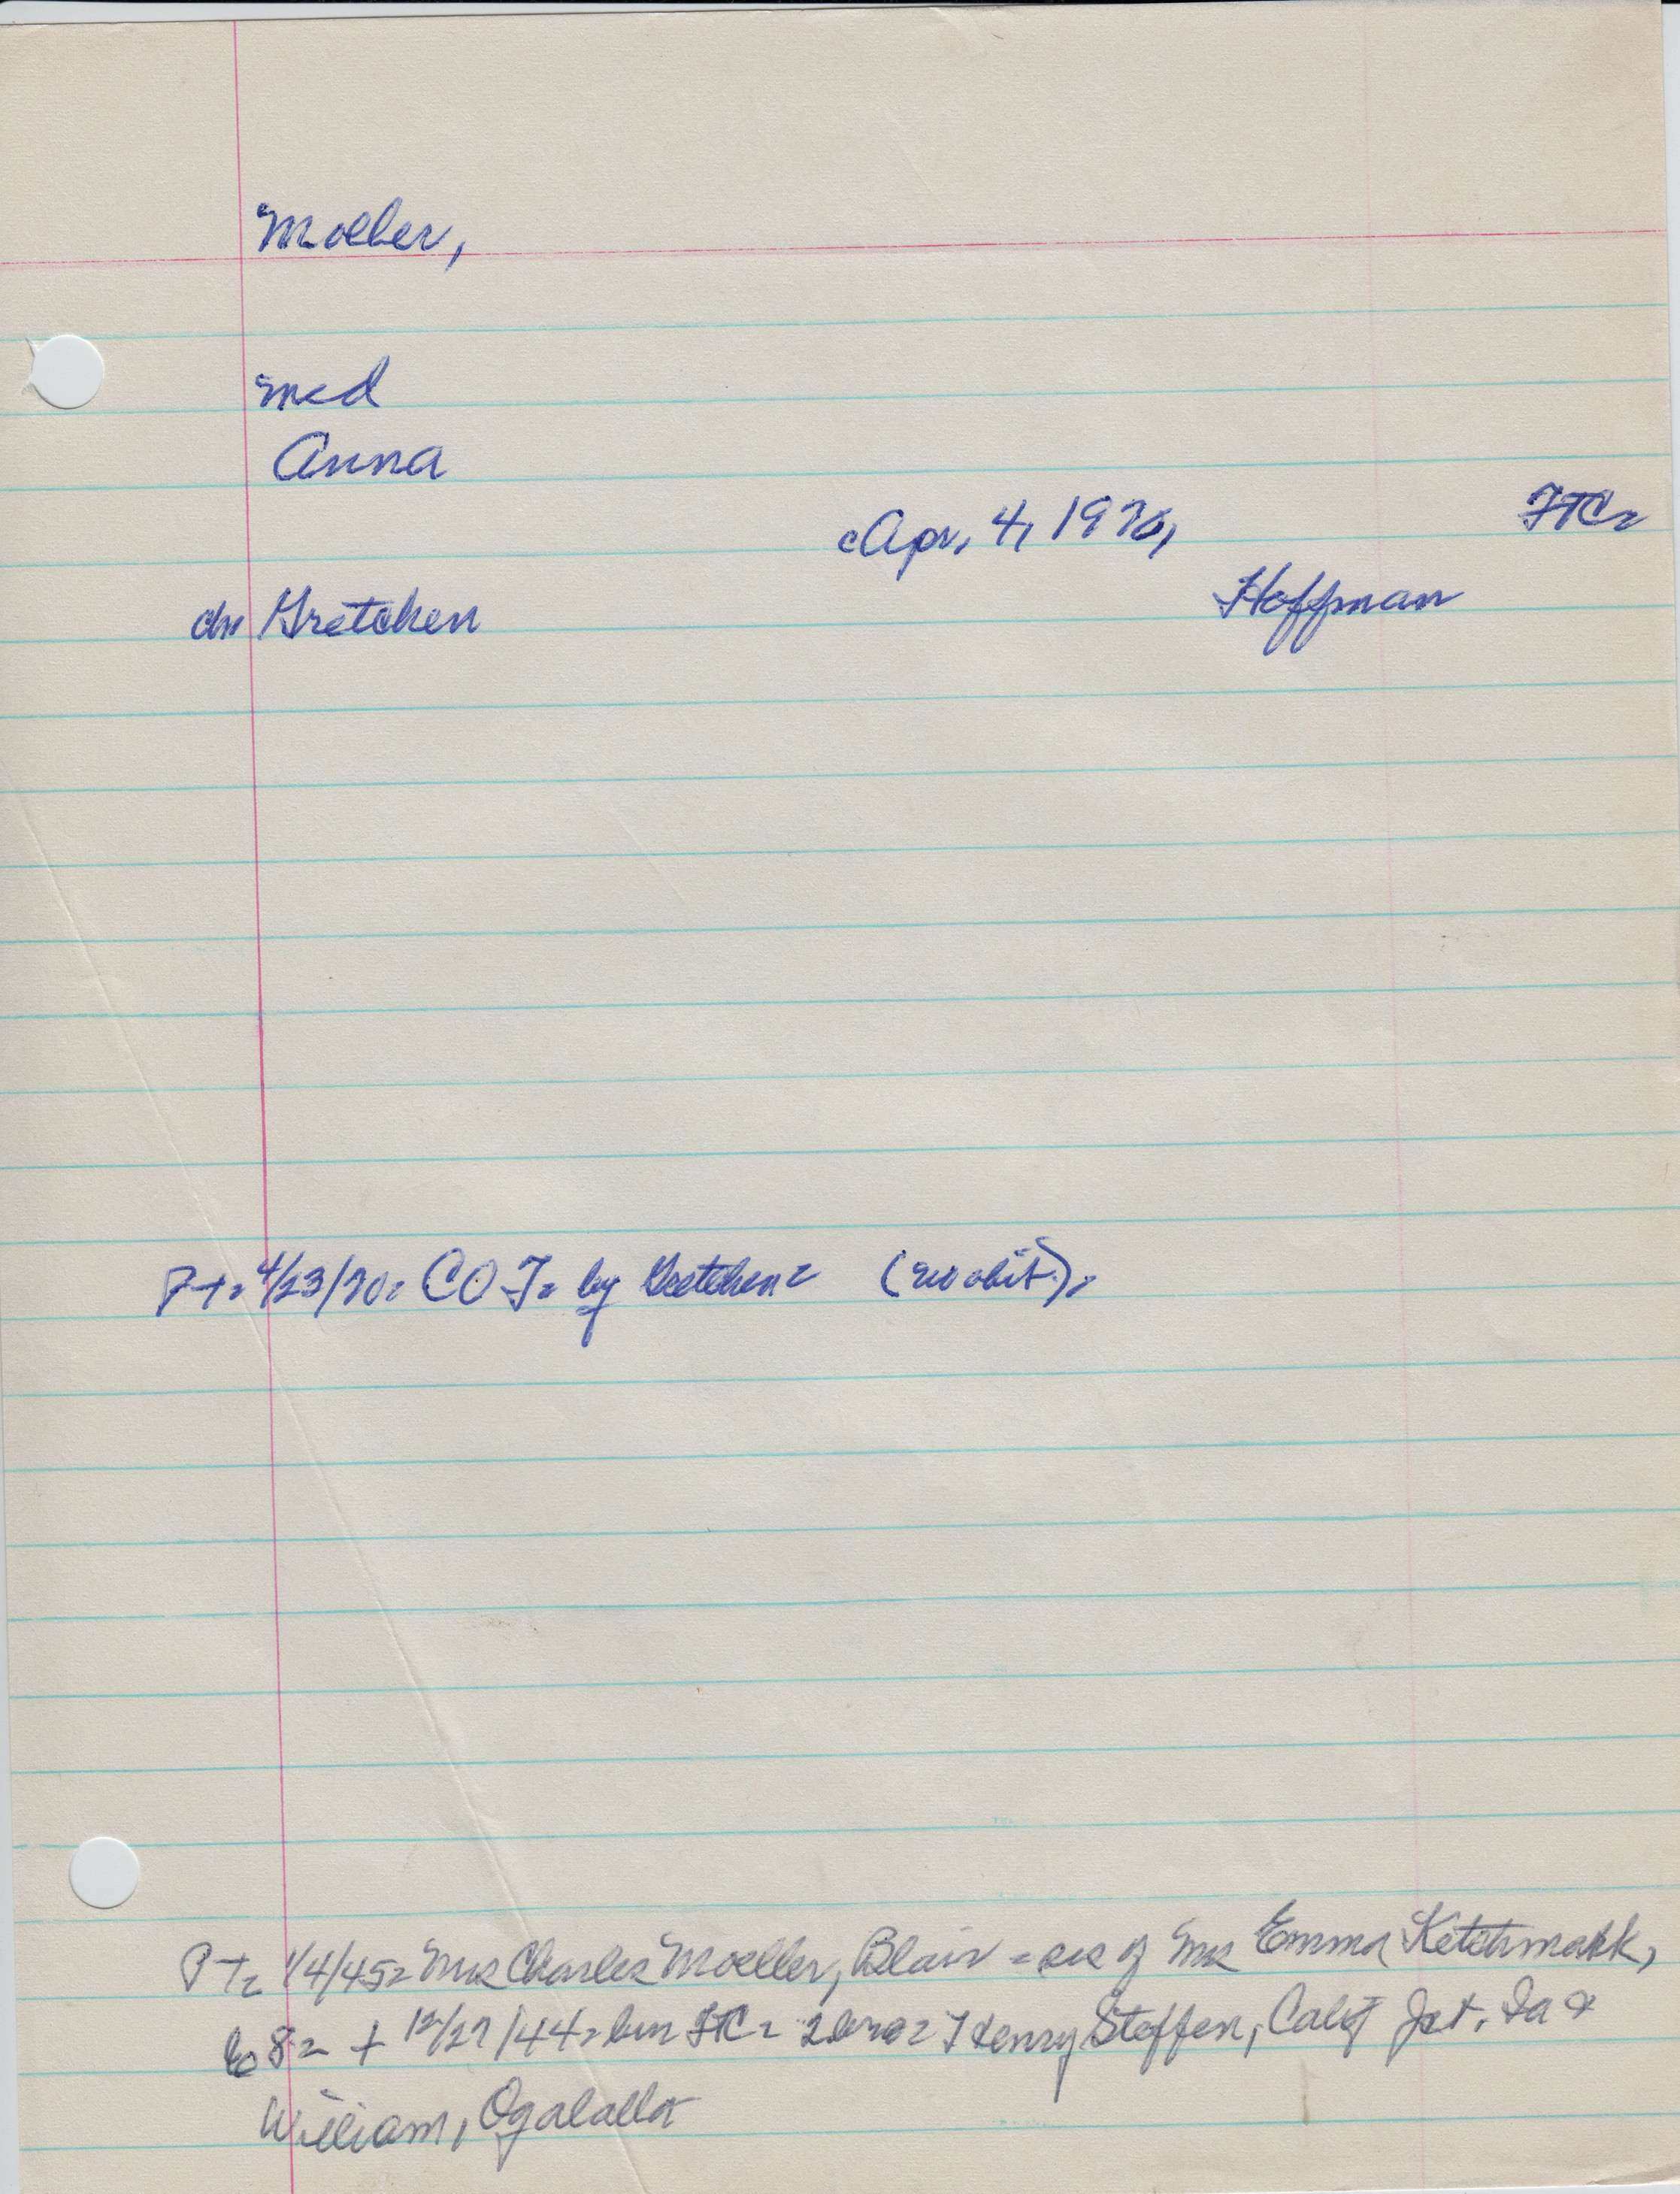 Moeller,
med
Anna
Apr, 4, 1970, FTC=
dr Gretchen Hoffman
PT= 4/23/70= CO J= by Gretchen= (no obit)=
PT= 1/4/45= Mrs Charles Moeller, Blair = sis of Mrs Emma Ketchmark,
68= + 12/27/44= bur FTC= 2 bros= Henry Steffen, Calif Jct. Ia &
William, Ogalalla